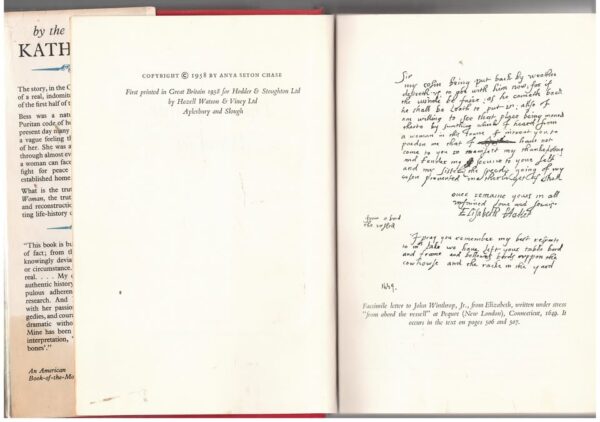 by the
KATH
The story, in the C
of a real, indomit
of the first half of t
Bess was a nat
Puritan code of b
present day many
a vague feeling th
of her. She was a
through almost ev
a woman can face
fight for peace
established home
What is the tru
Woman, the trut
and reconstructio
ting life-history c
"This book is bu
of fact; from th
knowingly devia
or circumstance.
real. . . . My c
authentic history
pulous adheren
research. And
with her passion
gedies, and coura
dramatic withou
Mine has been
interpretation, '
bones'."
An American
Book-of-the-Mo
COPYRIGHT © 1958 BY ANYA SETON CHASE
First printed in Great Britain 1958 for Hodder & Stoughton Ltd
by Hazell Watson & Viney Ltd
Aylesbury and Slough
Sir
my cosen being put back by weather
to goe with him now, for if
the winde be faire, as he cometh back
he shall be loath to put in; also
am willing to see that place being moved
thereto by something which I heard from
a woman in the towne I intreat you to
pardon me that I have not
come to you to manifest my thankfullnes
and render my service to your selfe
and my sister the speedy going of my
cosen prevented
once remaine yours in all
love and
Elisabeth
from abord
the vessell
I pray you remember my best respects
to have left your table bord
and frame and bords uppon the
cowhouse and the racke in the yard
1649.
Facsimile letter to John Winthrop, Jr., from Elizabeth, written under stress
"from abord the vessell" at Pequot (New London), Connecticut, 1649. It
occurs in the text on pages 506 and 507.